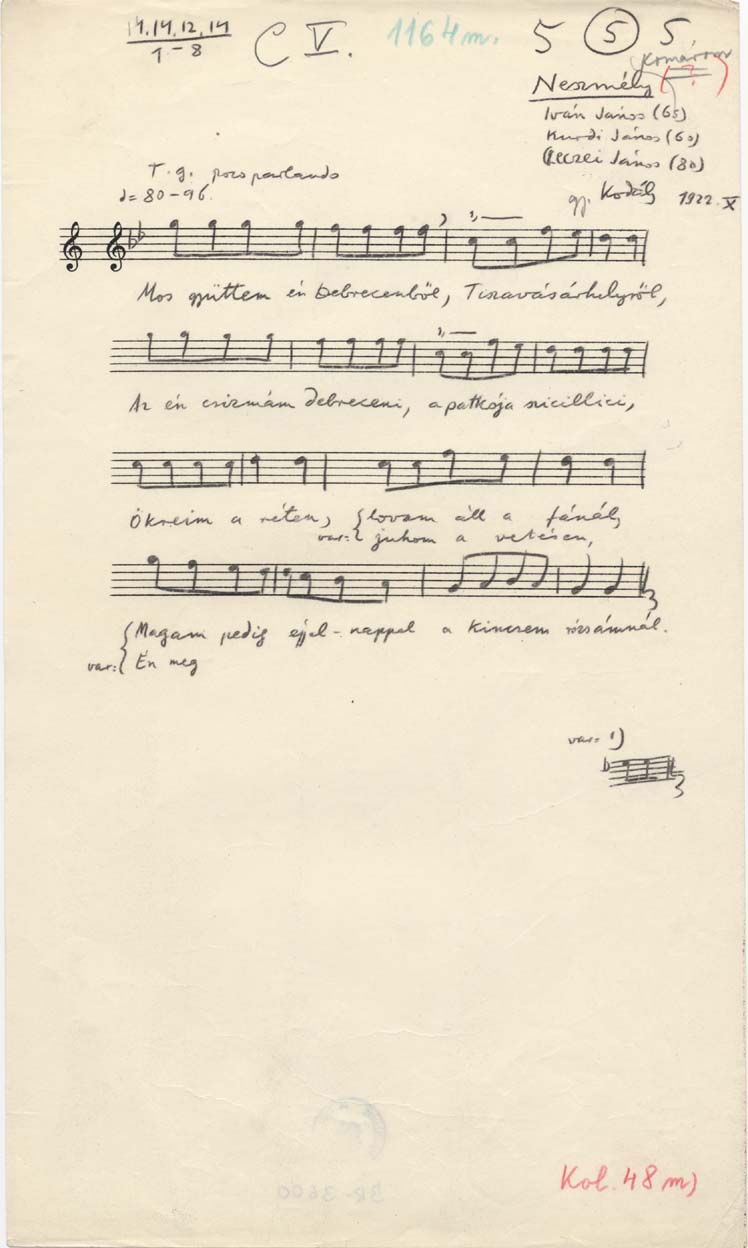 14, 14, 12, 14
1 - 8
C V.
1164 m.
5 5 5.
Komárom
(?)
Neszmély
Iván János (65)
Kurdi János (60)
János (80)
gy. Kodály 1922. X
T. g. poco parlando
= 80-96.
Mos gyüttem én Debrecenből, Tiszavásárhelyről,
Az én csizmám debreceni, a patkója sicillici,
Ökreim a réten, { lovam áll a fánál,
var: { juhom a vetésen,
{ Magam pedig éjjel-nappal a kincsem rózsámnál.
var: { Én meg
var: 1)
BR-3600
Kol. 48 m)